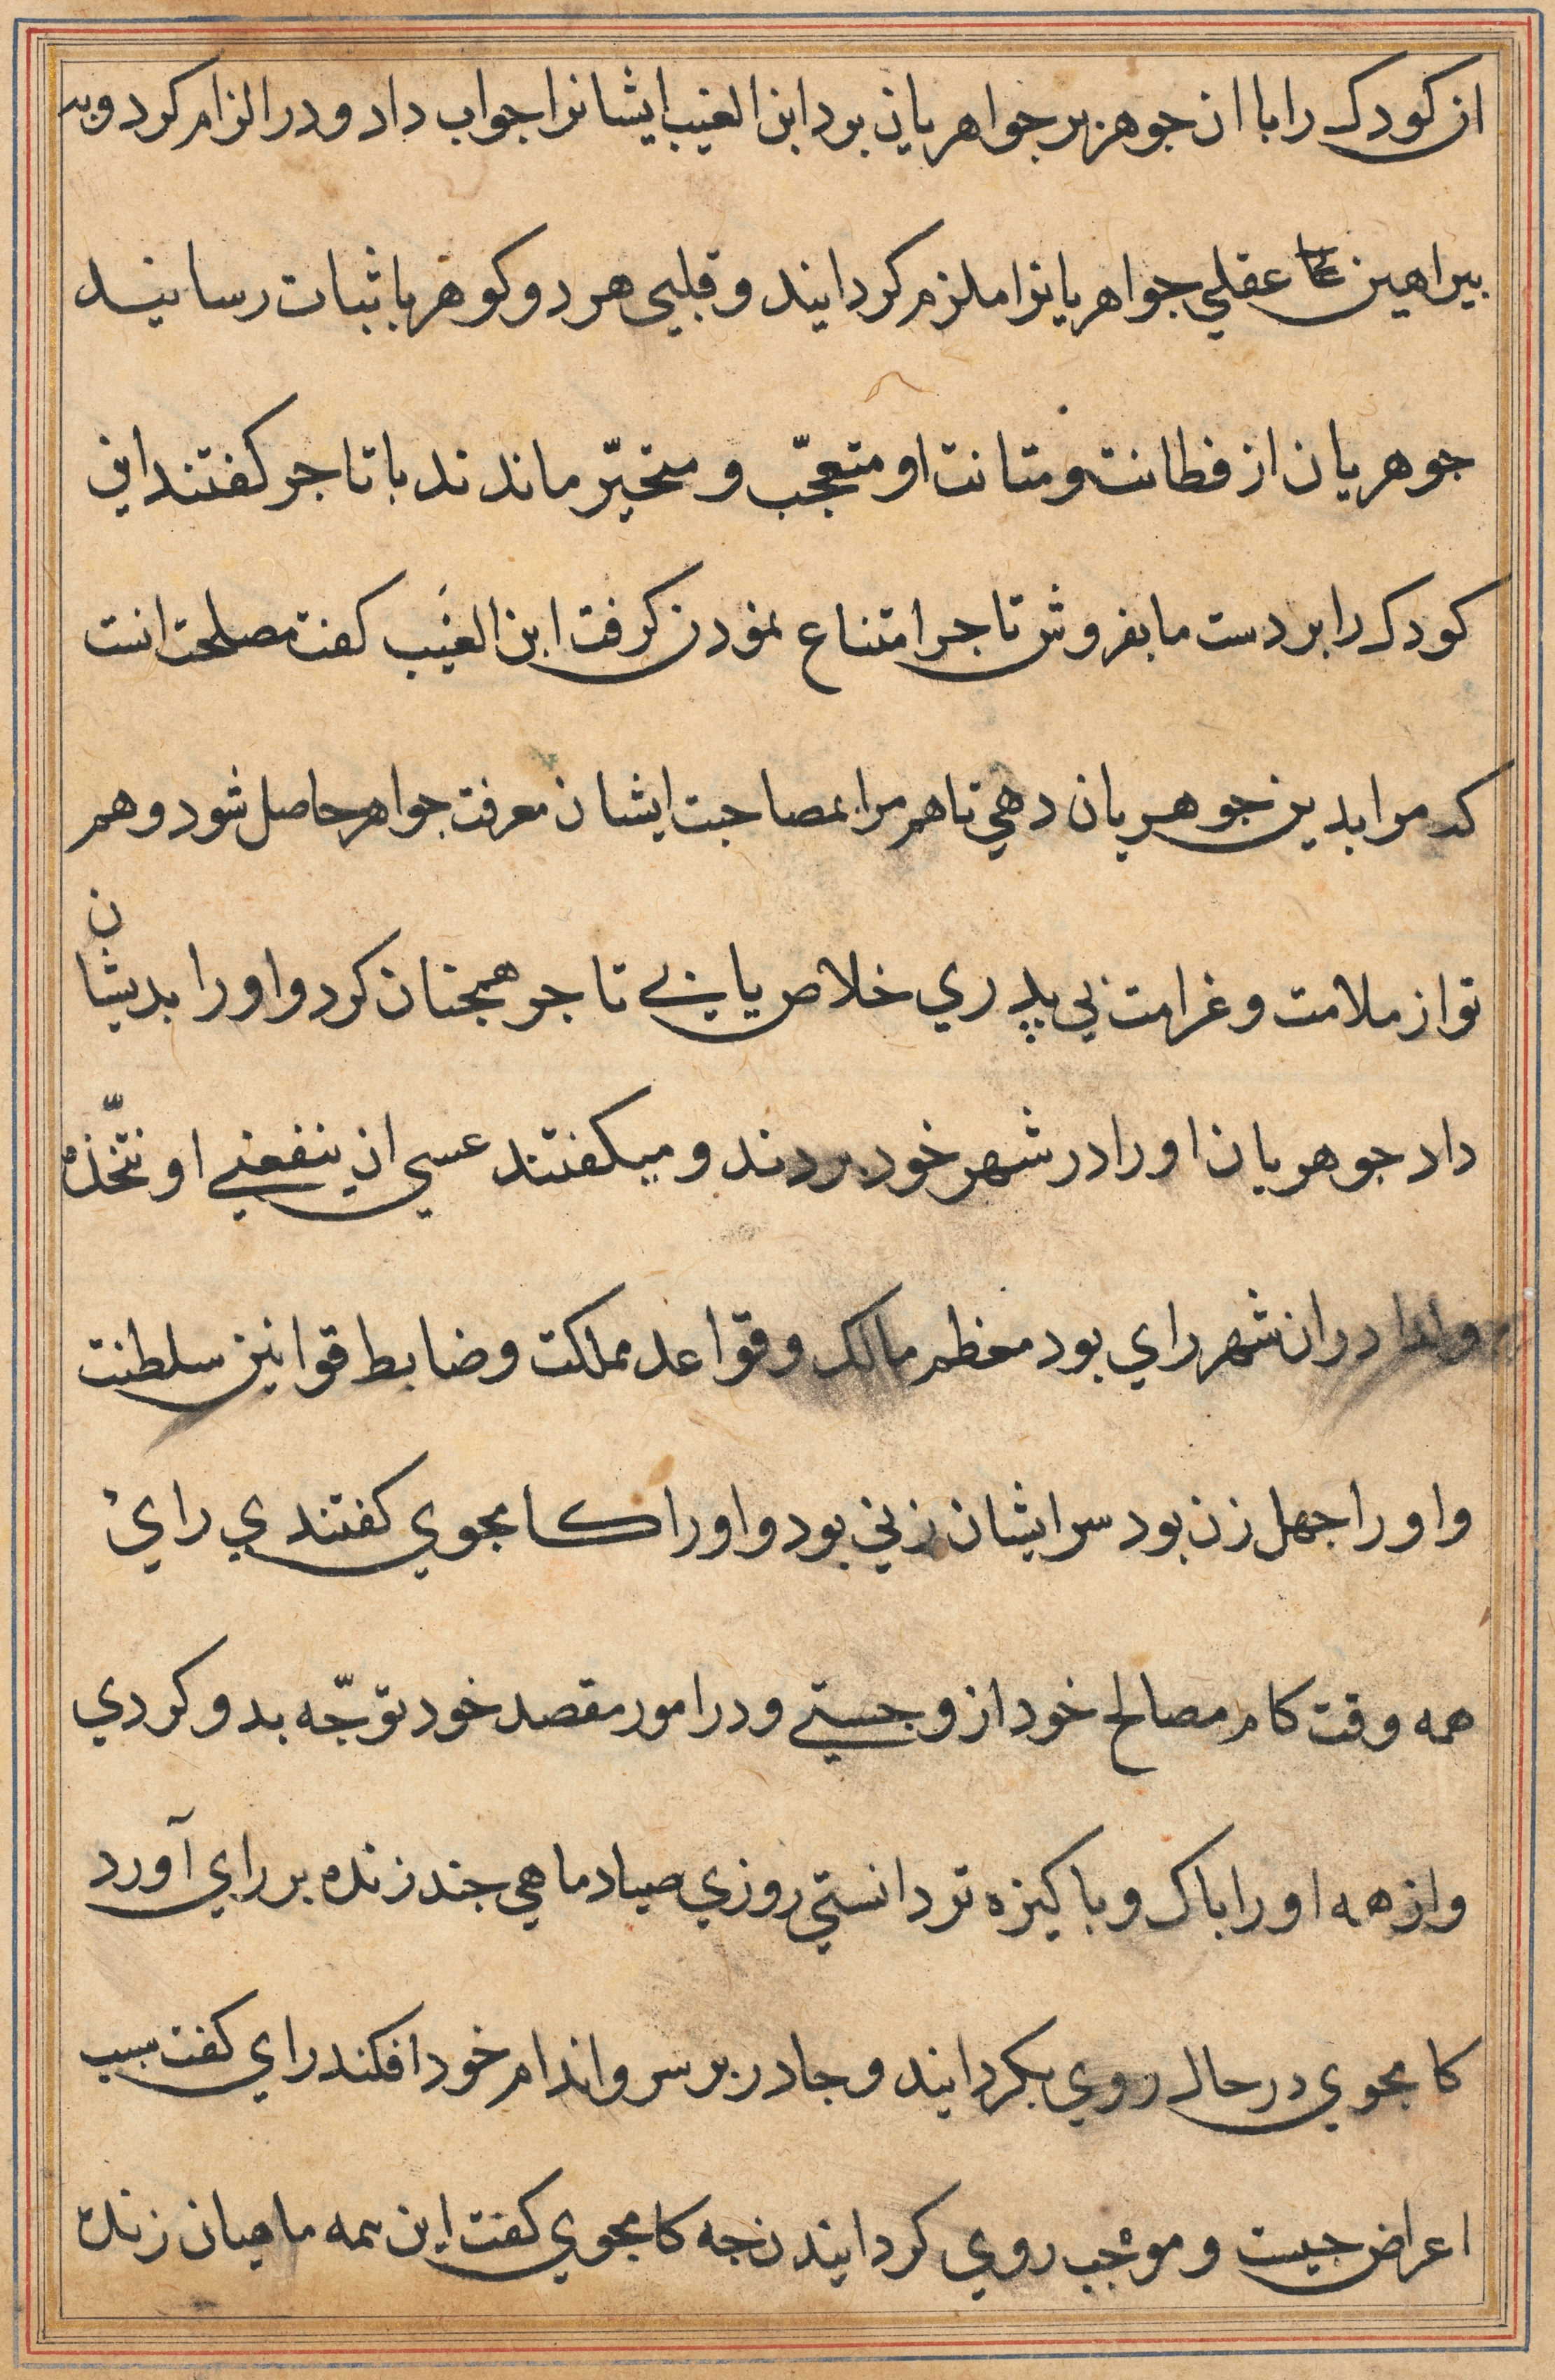 ان کودک را با ان جوهر بر جواهریان برد ابن الغیب ایشانرا جواب داد و در الزام کرد و به
ببراهین عقلي جواهریانرا ملزم کردایند و قلبی هر دو کوهر باثبات رسانید
جوهریان از فطانت و متانت او متعجّب و متحیّر ماندند با تاجر کفتند این
کودک را بر دست ما بفروش تاجر امتناع نمودن کرفت ابن الغیب کفت مصلحت انست
که مرا بدین جوهریان دهي تا هم مرا بمصاحبت ایشان معرفت جواهر حاصل شود و هم
تو از ملامت و غرامت بی پدري خلاص یابي تاجر همجنان کرد و او را بدیشان
داد جوهریان او را در شهر خود بردند و میکفتند عسي ان ینفعني او نتّخذه
ولدا در ان شهر راي بود معظم ممالک و قواعد مملکت و ضابط قوانین سلطنت
و او را جهل زن بود سر ایشان زني بود و او را کامجوي کفتندي راي
همه وقت کام مصالح خود ازو جستي و در امور مقصد خود توجّه بدو کردي
و از همه او را باک و باکیزه تر دانستي روزي صیاد ماهي جند زنده بر راي آورد
کامجوي در حال روي بکردایند و جادر بر سر و اندام خود افکند راي کفت سبب
اعراض جیست و موجب روي کردایندن جه کامجوي کفت این همه ماهیان زنده